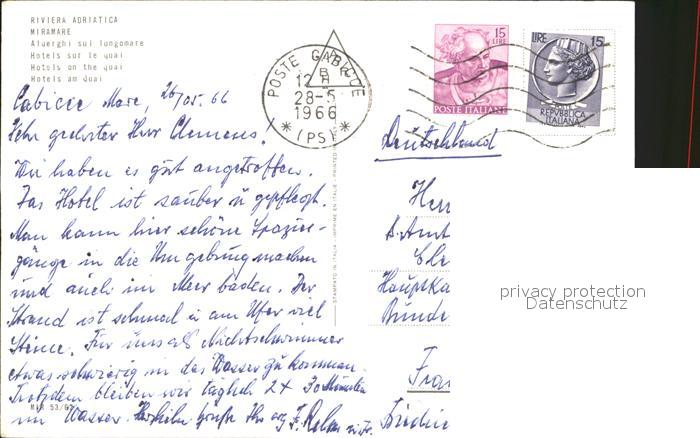 RIVIERA ADRIATICA
MIRAMARE
Alberghi sul lungomare
Hotels sur le quai
Hotels on the quai
Hotels am Quai
Gabicce Mare, 26/05. 66
Sehr geehrter Herr Clemens!
Wir haben es gut angetroffen.
Das Hotel ist sauber u gepflegt.
Man kann hier schöne Spazier-
gänge in die Umgebung machen
und auch im Meer baden. Der
Strand ist schmal u am Ufer viel
Steine. Für uns als Nichtschwimmer
etwas schwierig in das Wasser zu kommen.
Trotzdem bleiben wir täglich 2x 30 Minuten
im Wasser. Herzliche Grüße Ihr
MIR 53/6
STAMPATO IN ITALIA - IMPRIME EN ITALIE - PRINTED
POSTE GABICCE
12
28-5
1966
* (PS) *
15
LIRE
POSTE ITALIANE
LIRE 15
REPVBBLICA
ITALIANA
Deutschland
Herr
Amt
Cle
Hauptka
Bunde
Fra
Friedric
privacy protection
Datenschutz